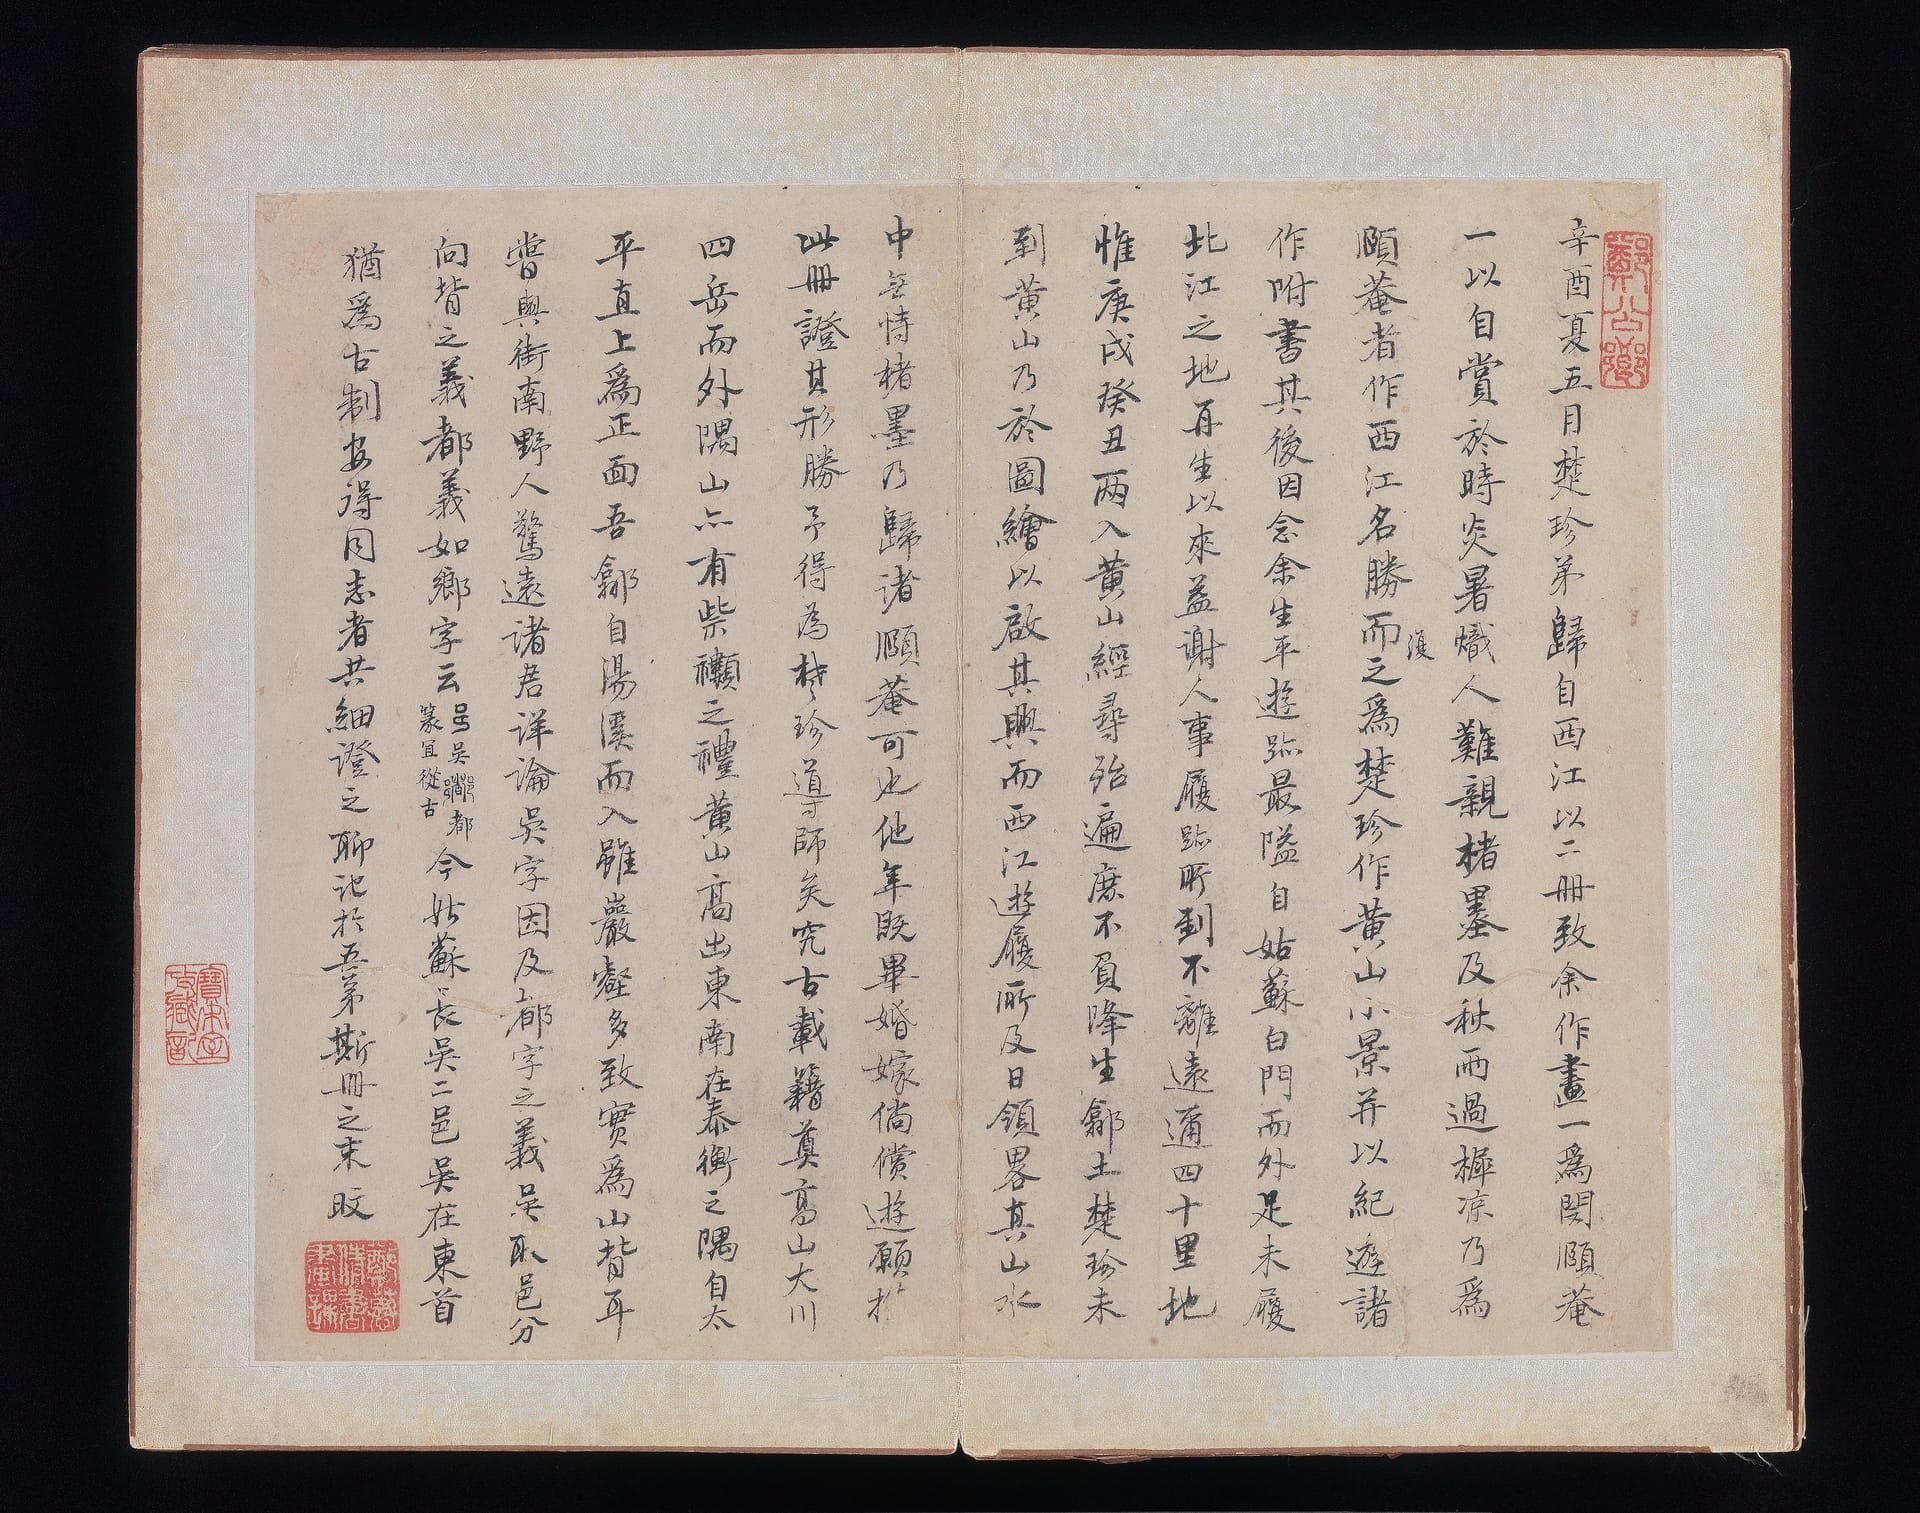 辛酉夏五月楚珍弟歸自西江以二冊致余作畫一為閔頤菴
一以自賞於時炎暑熾人難親楮墨及秋雨過樨涼乃為
頤菴者作西江名勝而復之為楚珍作黃山小景并以紀遊諸
作附書其後因念余生平遊跡最隘自姑蘇白門而外足未履
北江之地再生以來益謝人事履跡所到不離遠邇四十里地
惟庚戌癸丑兩入黃山經尋殆遍庶不負降生鄙土楚珍未
到黃山乃於圖繪以啟其興而西江遊履所及日領畧真山水
中無恃楮墨乃歸諸頤菴可也他年既畢婚嫁倘償遊願於
此冊證其形勝予得為楚珍導師矣究古載籍奠高山大川
四岳而外隅山亦有柴禷之禮黃山高出東南在泰衡之隅自太
平直上為正面吾鄙自湯溪而入雖巖壑多致實為山背耳
嘗與街南野人驚遠諸君詳論吳字因及鄙字之義吳取邑分
向背之義都義如鄉字云
吳
都
篆宜從古
今姑蘇長吳二邑吳在東首
猶為古制安得同志者共細證之聊記於五弟斯冊之末旼
鄭旼